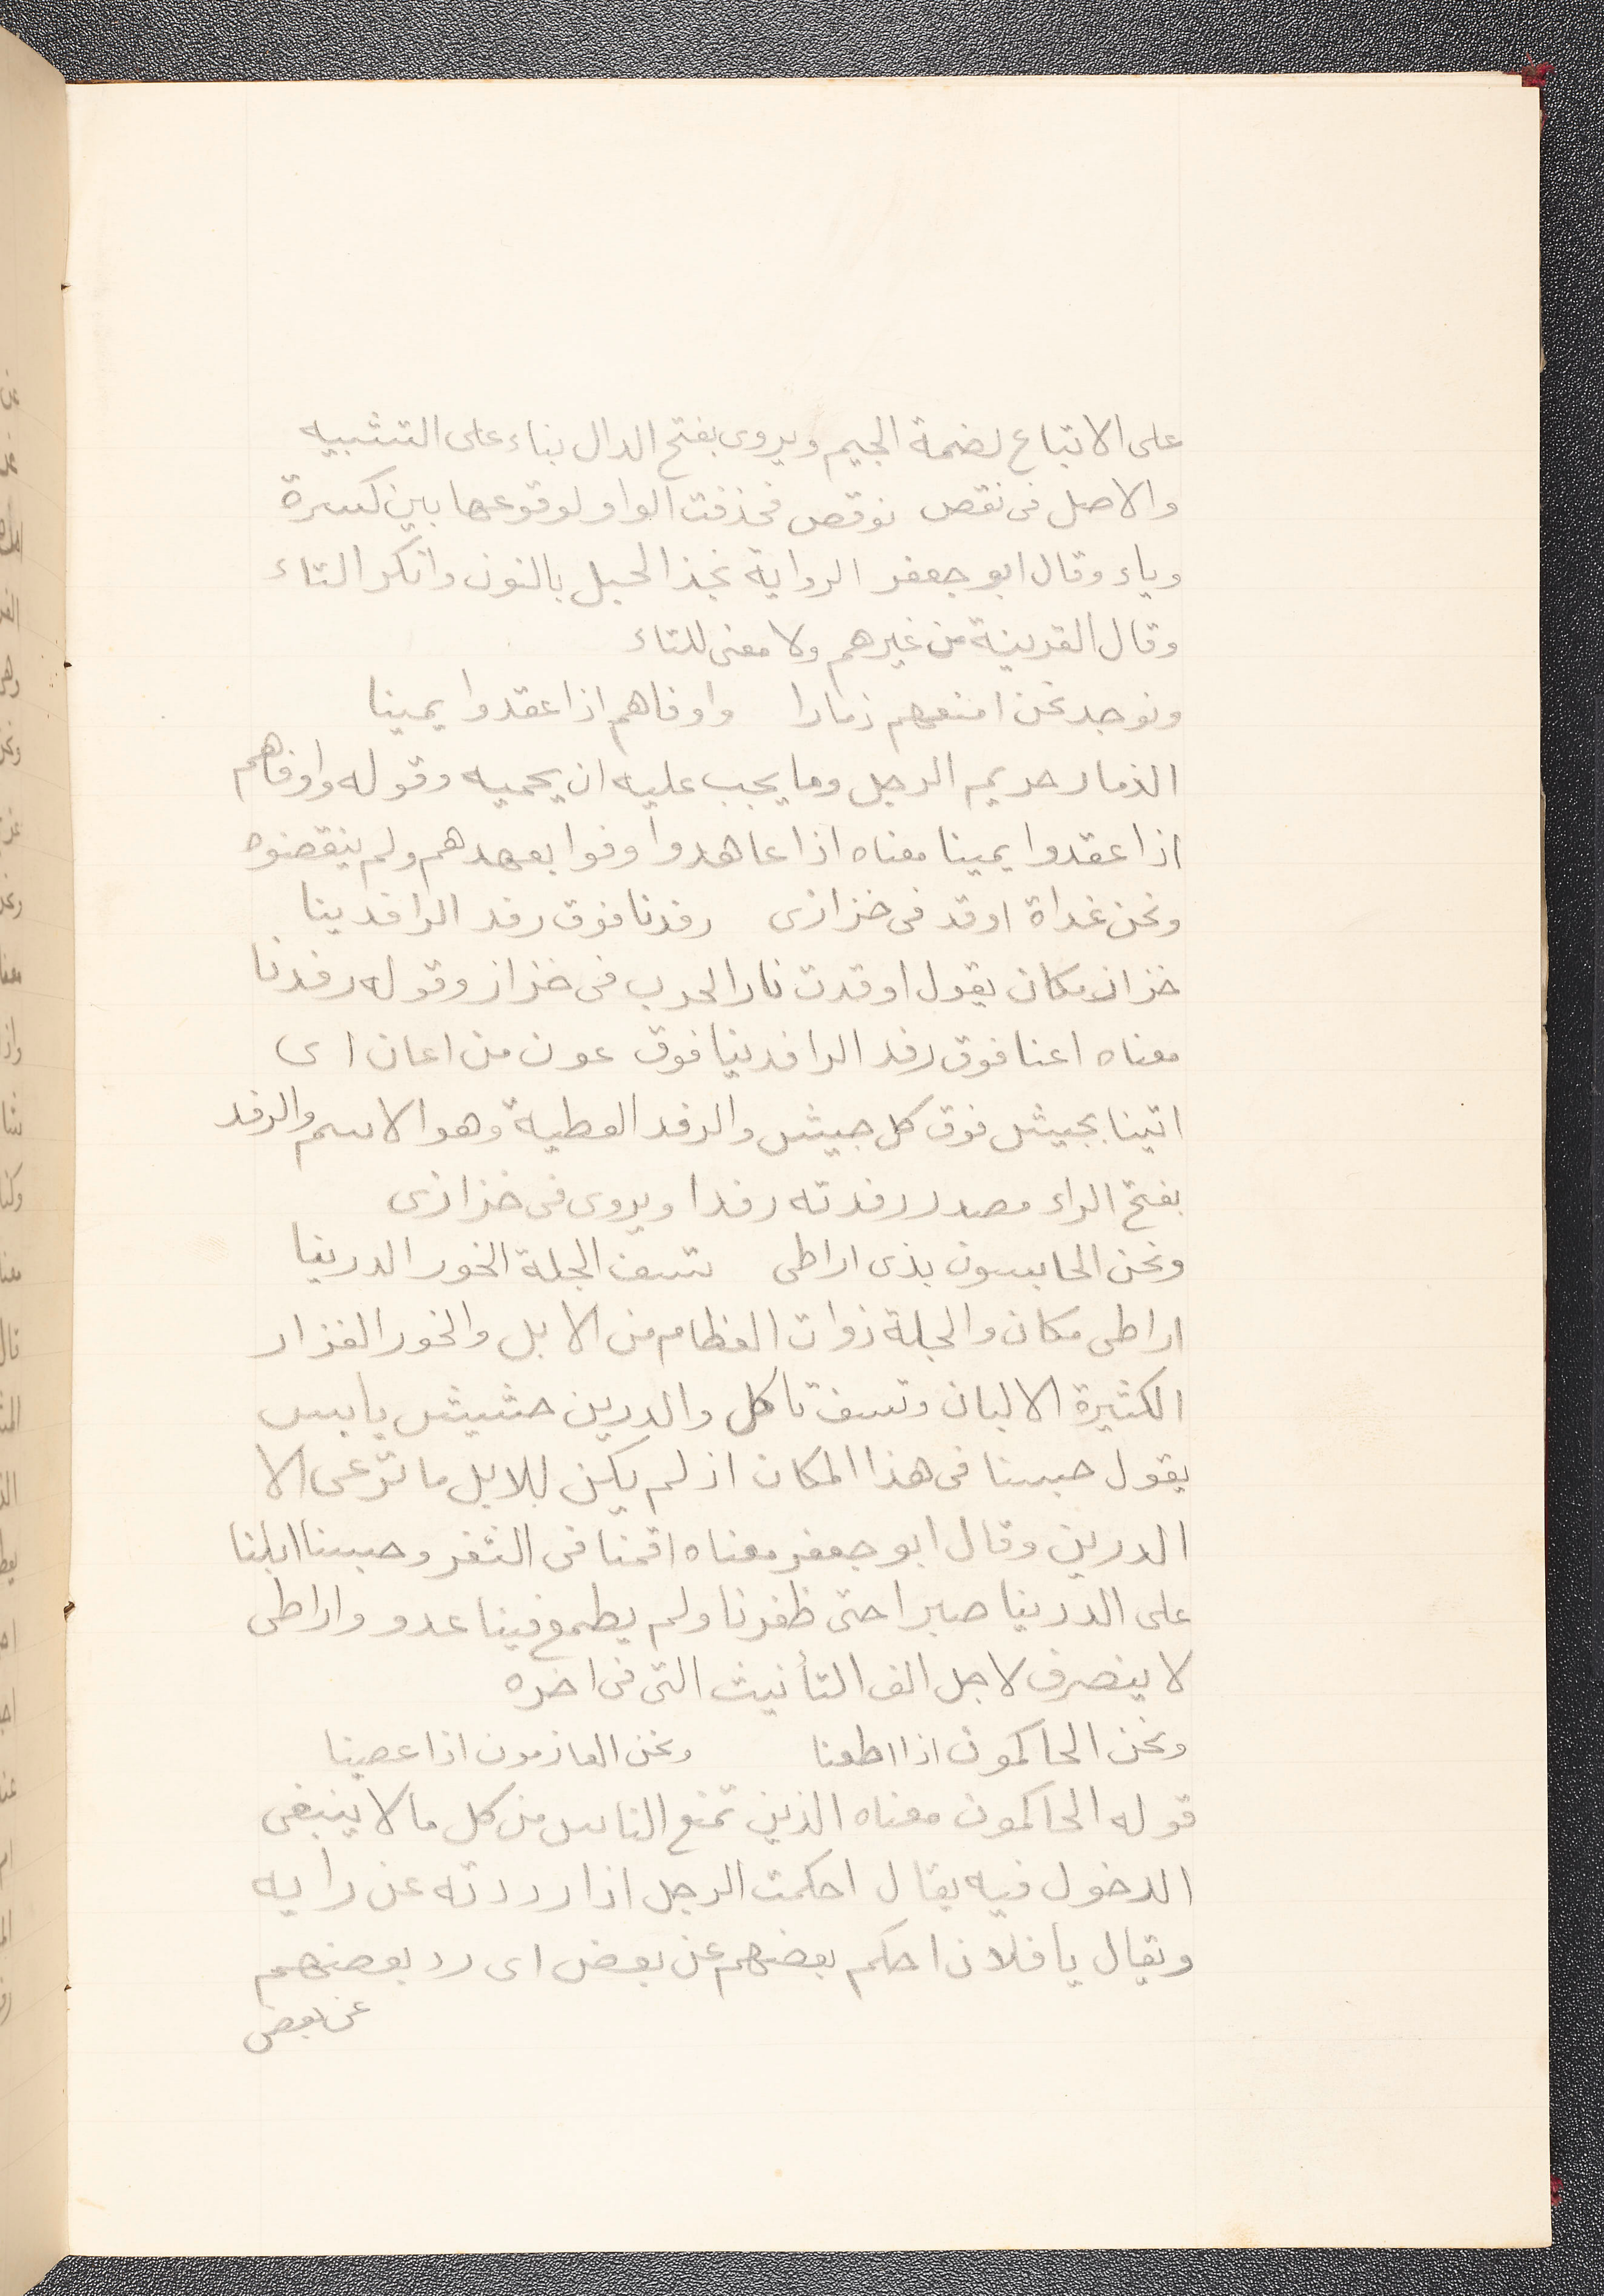 على الاتباع لضمة الجيم ويروى بفتح الدال بناء على التشبيه
والاصل فى نقص نوقص فحذفت الواو لوقوعها بين كسرة
وياء وقال ابو جعفر الرواية نجذ الحبل بالنون وانكر التاء
وقال القرينة من غيرهم ولا معنى للتاء
ونوجد نحن امنعهم ذمارا واوفاهم اذا عقدوا يمينا
الذمار حريم الرجل وما يجب عليه ان يحميه وقوله واوفاهم
اذا عقدوا يمينا معناه اذا عاهدوا اوفوا بعهدهم ولم ينقضوه
ونحن غداة اوقد فى خزازى رفدنا فوق رفد الرافدينا
خزاز مكان يقول اوقدت نار الحرب فى خزاز وقوله رفدنا
معناه اعنا فوق رفد الرافدينا فوق عون من اعان اى
اتينا بجيش فوق كل جيش والرفد العطية وهو الاسم والرفد
بفتح الراء مصدر رفدته رفدا ويروى فى خزازى
ونحن الحابسون بذى اراطى تسف الجلة الخور الدرينا
اراطى مكان والجلة ذوات العظام من الابل والخور الغزار
الكثيرة الالبان وتسف تاكل والدرين حشيش يابس
يقول حبسنا فى هذا المكان اذ لم يكن للابل ما ترعى الا
الدرين وقال ابو جعفر معناه اقمنا فى الثغر وحبسنا ابلنا
على الدرينا صبرا حتى ظفرنا ولم يطمع فينا عدو واراطى
لا ينصرف لاجل الف التأنيث التى فى اخره
ونحن الحاكمون اذا اطعنا ونحن العازمون اذا عصينا
قوله الحاكمون معناه الذين تمنع الناس من كل ما لا ينبغى
الدخول فيه يقال احكمت الرجل اذا رددته عن رايه
ويقال يا فلان احكم بعضهم عن بعض اى رد بعضهم
عن بعض